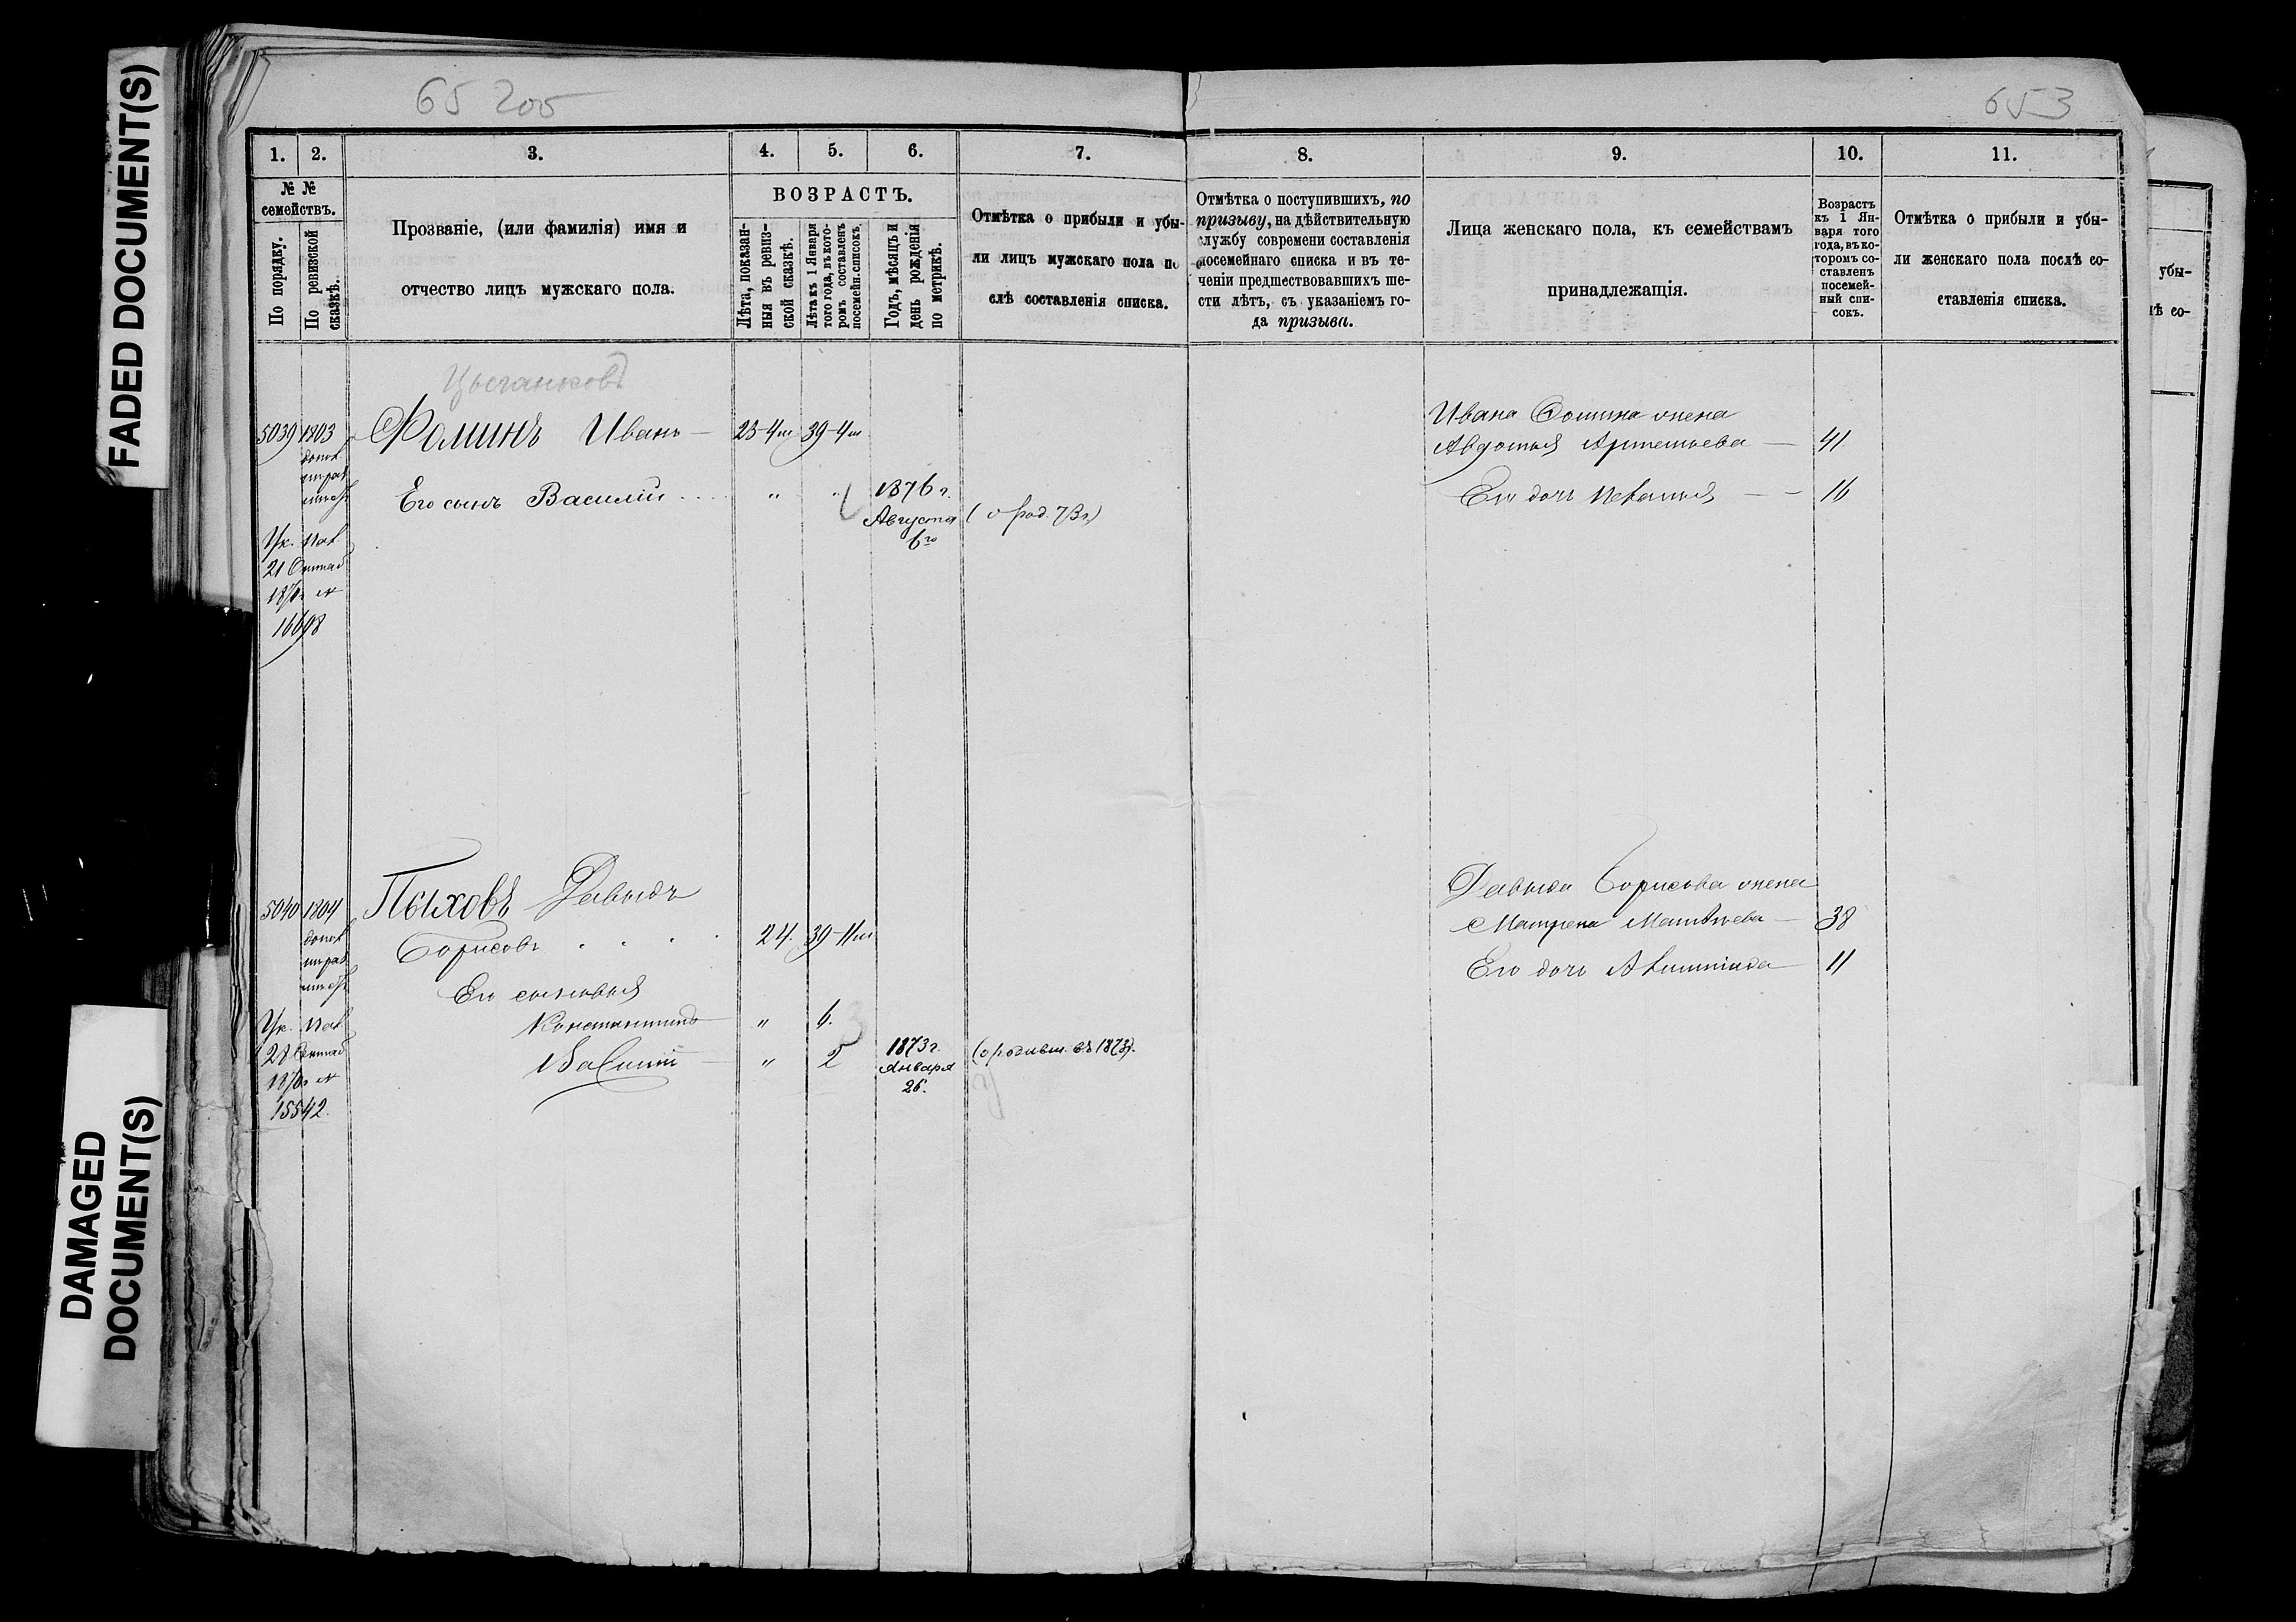 FADED DOCUMENT(S)
DAMAGED
DOCUMENT(S)
65 205
653
1.
2.
3.
4.
5.
6.
7.
8.
9.
10.
11.
№ №
семействъ.
По порядку.
По ревизской
сказкѣ.
Прозваніе, (или фамилія) имя и
отчество лицъ мужскаго пола.
ВОЗРАСТЪ.
Лѣта, показан-
ныя въ ревиз-
ской сказкѣ.
Лѣта къ 1 Января
того года, въ кото-
ромъ составленъ
посемейн. списокъ.
Годъ, мѣсяцъ и
день рожденія
по метрикѣ.
Отмѣтка о прибыли и убы-
ли лицъ мужскаго пола по
слѣ составленія списка.
Отмѣтка о поступившихъ, по
призыву, на дѣйствительную
службу современи составленія
посемейнаго списка и въ те-
ченіи предшествовавшихъ ше-
сти лѣтъ, съ указаніемъ го-
да призыва.
Лица женскаго пола, къ семействамъ
принадлежащія.
Возрастъ
къ 1 Ян-
варя того
года, въ ко-
торомъ со-
ставленъ
посемей-
ный спи-
сокъ.
Отмѣтка о прибыли и убы-
ли женскаго пола послѣ со-
ставленія списка.
убы-
ѣ со-
Цыганковъ
5039 1803 Фоминъ Иванъ 23-4м 39-4м
Его сынъ Василій " " 1876 г.
Августа
6го
(о род. 73г)
21
16698
Ивана Фомина жена
Авдотья Артемьева 41
Его дочь 16
5040 1804 Пыховъ Давыдъ
Борисовъ 24. 39-11м
Его сыновья
Константинъ " 6.
Василій " 2 1873 г.
Января
26.
(о родивш. въ 1873).
28
15542.
Давыда Борисова жена
Матрена Матвѣева 38
Его дочь 11